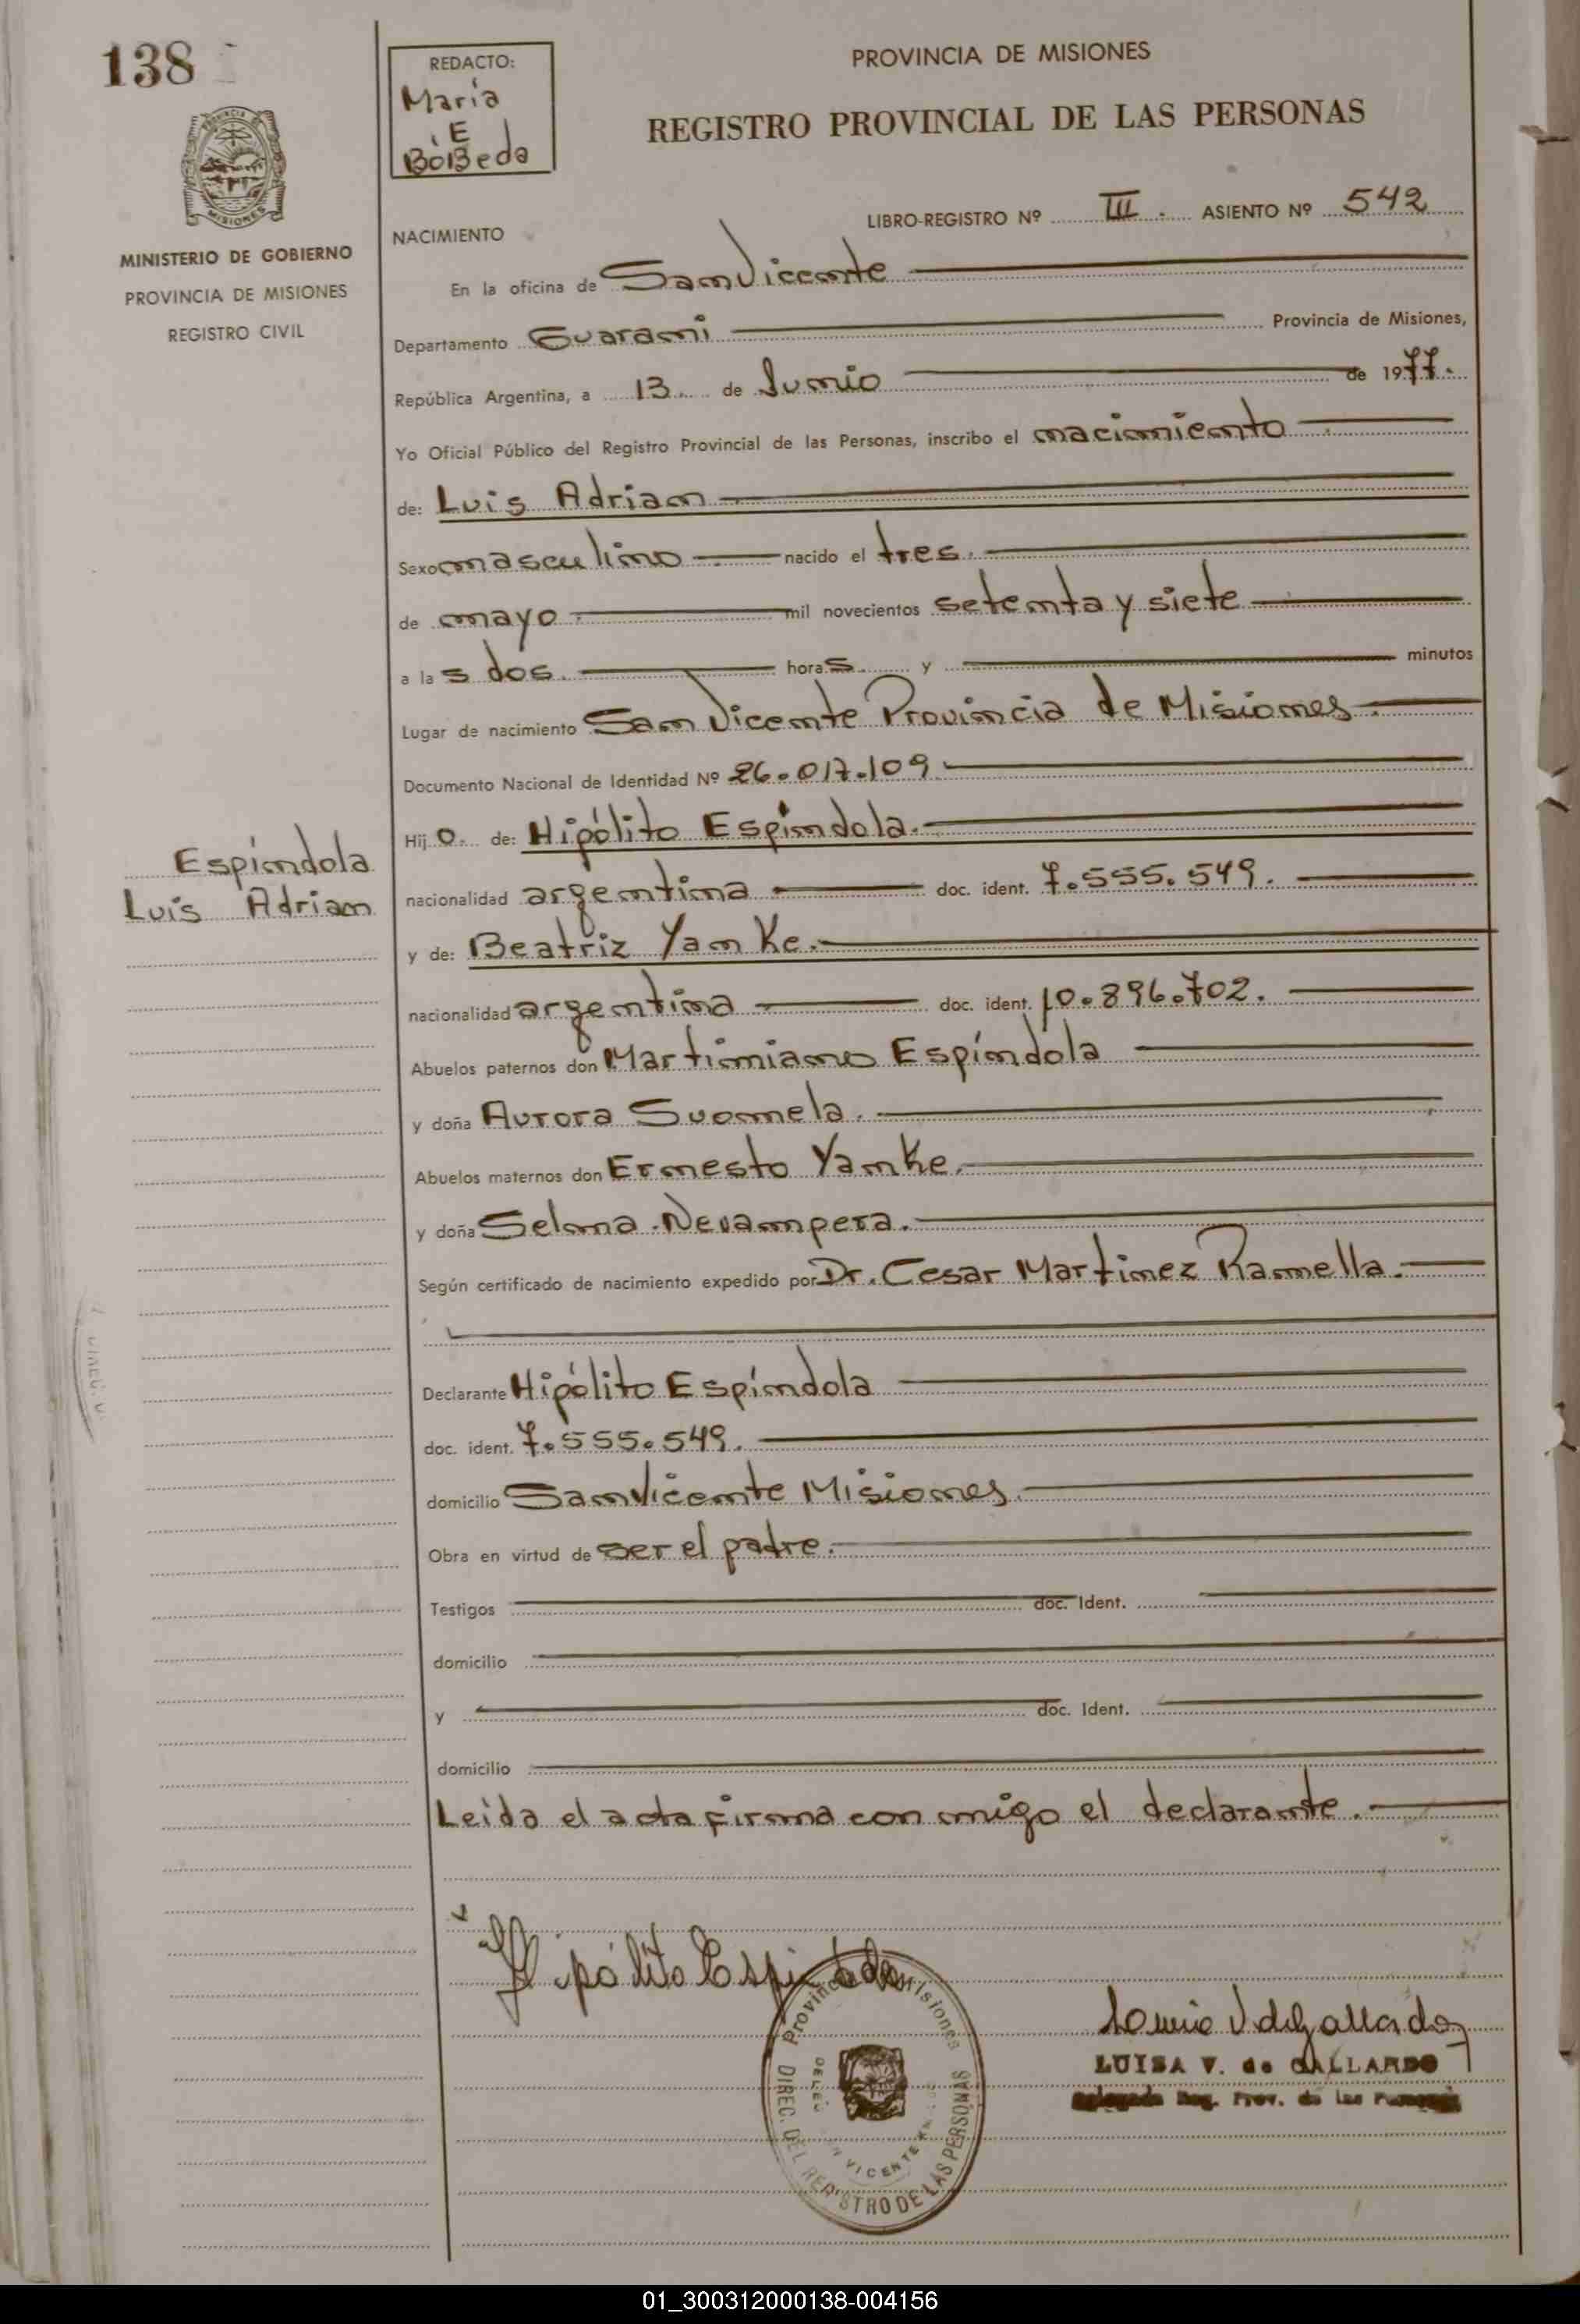 138
REDACTO:
Maria
E
BoBeda
PROVINCIA DE MISIONES
REGISTRO PROVINCIAL DE LAS PERSONAS
MINISTERIO DE GOBIERNO
PROVINCIA DE MISIONES
REGISTRO CIVIL
LIBRO-REGISTRO Nº III. ASIENTO Nº 542
NACIMIENTO
En la oficina de San Vicente
Departamento Guarani Provincia de Misiones,
República Argentina, a 13 de Junio de 1977.
Yo Oficial Público del Registro Provincial de las Personas, inscribo el nacimiento
de: Luis Adrian
Sexo masculino nacido el tres
de mayo mil novecientos setenta y siete
a las dos. horas y minutos
Lugar de nacimiento San Vicente Provincia de Misiones.
Documento Nacional de Identidad Nº 26.017.109
Hijo. de: Hipólito Espíndola.
Espíndola
Luis Adrian
nacionalidad argentina doc. ident. 7.555.549.
y de: Beatriz Yanke.
nacionalidad argentina doc. ident. 10.896.702.
Abuelos paternos don Martiniano Espíndola
y doña Aurora Suomela.
Abuelos maternos don Ernesto Yanke.
y doña Selma Nevampera.
Según certificado de nacimiento expedido por Dr. Cesar Martinez Ramella.
Declarante Hipólito Espíndola
doc. ident. 7.555.549.
domicilio San Vicente Misiones.
Obra en virtud de ser el padre.
Testigos doc. Ident.
domicilio
y doc. Ident.
domicilio
Leida el acta firma con migo el declarante.
Hipólito Espindola
Provincia de Misiones
DIREC. DEL REGISTRO DE LAS PERSONAS
LUISA V. de GALLARDO
Delegada Reg. Prov. de las Personas
01_300312000138-004156